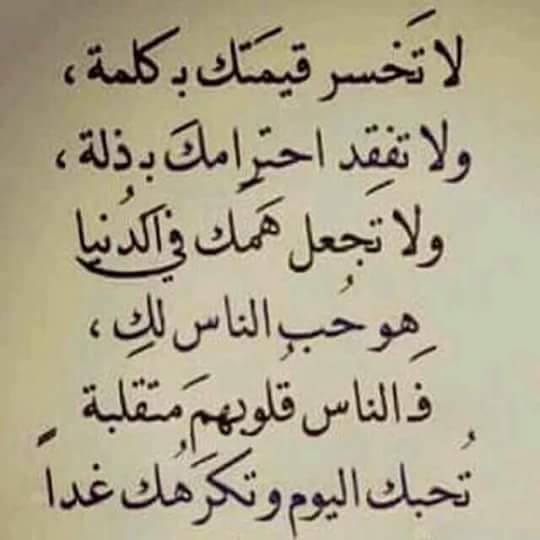 لا تَخسر قيمَتك بـكلمة ،
ولا تفقِد احترِامكَ بـذلة ،
ولا تجعل هَمك في الدُنيا
هِو حُب الناس لكِ ،
فـ الناس قُلوبهم مَتقلبة
تُحبك اليوم وتكرَهُك غداً